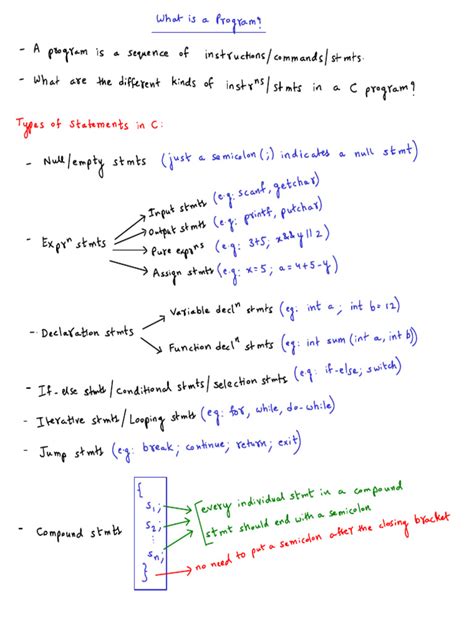 What is a Program?
- A program is a sequence of instructions/commands/stmts.
- What are the different kinds of instrⁿˢ/stmts in a C program?
Types of Statements in C:
- Null/empty stmts (just a semicolon(;) indicates a null stmt)
- Exprⁿ stmts
Input stmts (e.g: scanf, getchar)
Output stmts (e.g: printf, putchar)
Pure exprⁿs (e.g: 3+5; x&&y||2)
Assign stmts (e.g: x=5; a=4+5-y)
- Declaration stmts
Variable declⁿ stmts (eg: int a; int b=12)
Function declⁿ stmts (eg: int sum (int a, int b))
- If-else stmts/conditional stmts/selection stmts (e.g: if-else; switch)
- Iterative stmts/Looping stmts (eg: for, while, do-while)
- Jump stmts (eg: break; continue; return; exit)
- Compound stmts
{
s₁;
s₂;
⋮
sₙ;
}
every individual stmt in a compound
stmt should end with a semicolon
no need to put a semicolon after the closing bracket